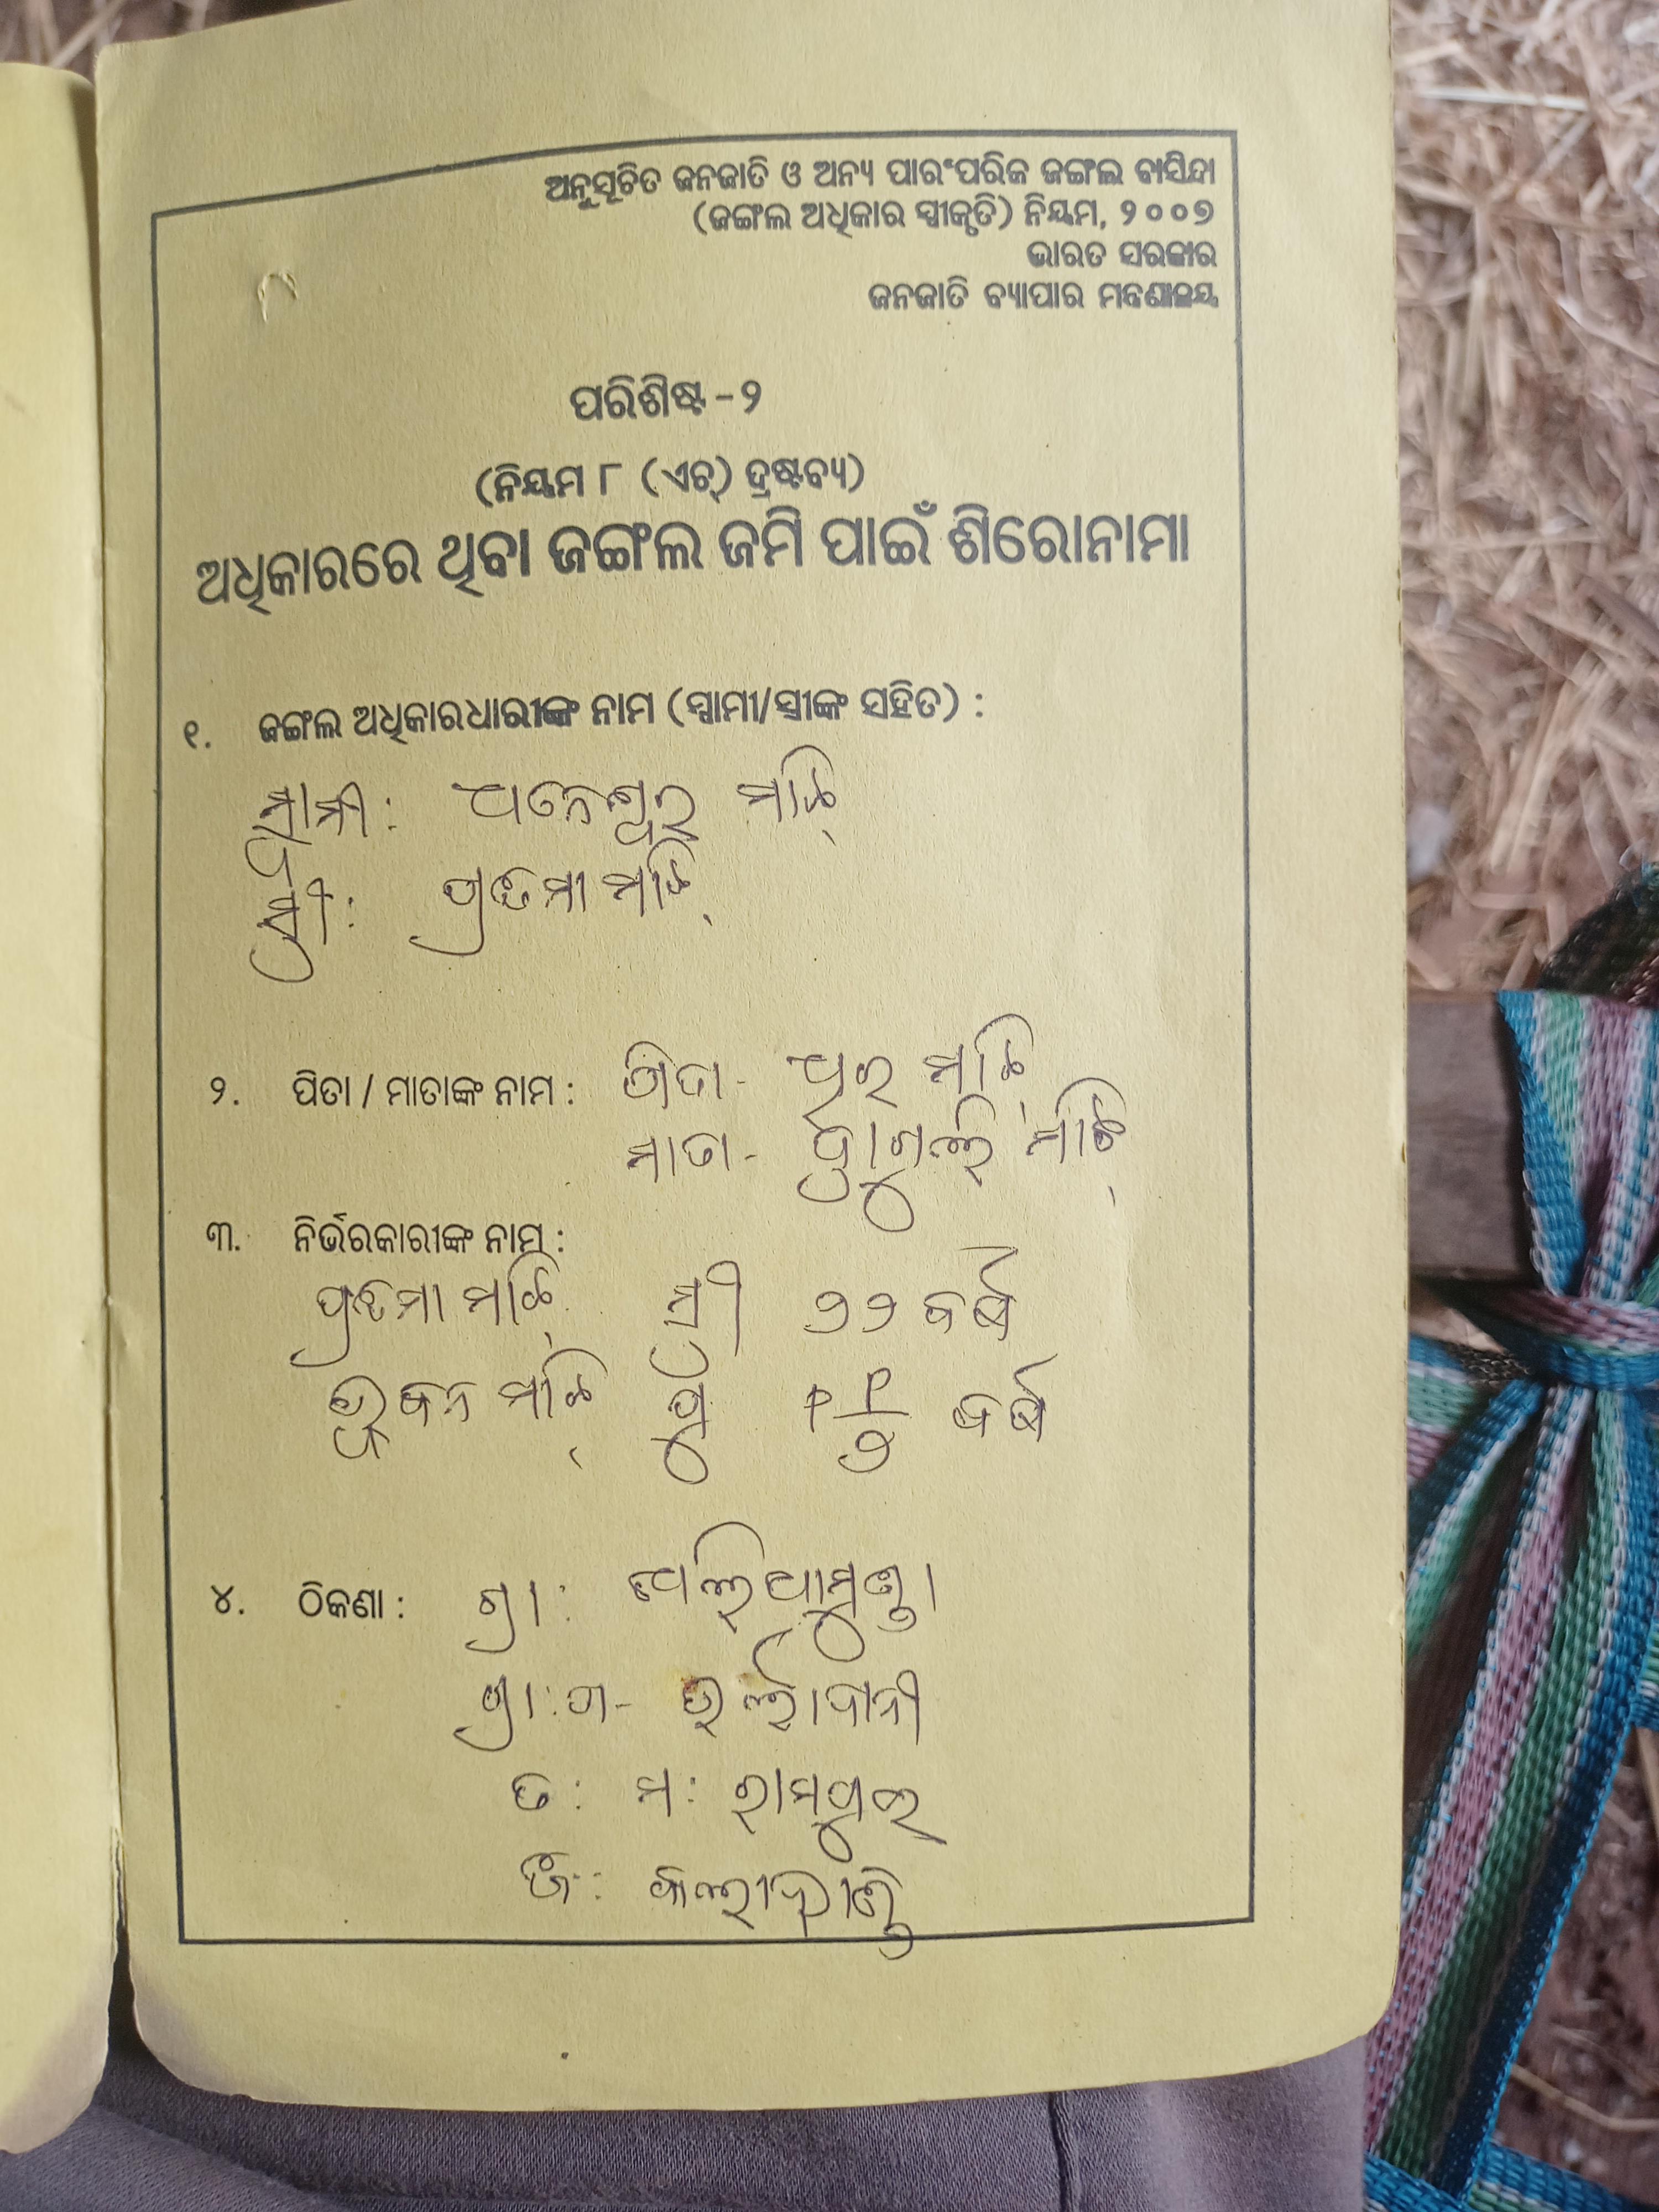 ଅନୁସୂଚିତ ଜନଜାତି ଓ ଅନ୍ୟ ପାରଂପରିକ ଜଙ୍ଗଲ ବାସିନ୍ଦା
(ଜଙ୍ଗଲ ଅଧିକାର ସ୍ୱୀକୃତି) ନିୟମ, ୨୦୦୭
ଭାରତ ସରକାର
ଜନଜାତି ବ୍ୟାପାର ମନ୍ତ୍ରଣାଳୟ
ପରିଶିଷ୍ଟ - ୨
(ନିୟମ ୮ (ଏଚ୍) ଦ୍ରଷ୍ଟବ୍ୟ)
ଅଧିକାରରେ ଥିବା ଜଙ୍ଗଲ ଜମି ପାଇଁ ଶିରୋନାମା
୧. ଜଙ୍ଗଲ ଅଧିକାରଧାରୀଙ୍କ ନାମ (ସ୍ୱାମୀ/ସ୍ତ୍ରୀଙ୍କ ସହିତ) :
ସ୍ୱାମୀ: ଧନେଶ୍ୱର ମାଝି
ସ୍ତ୍ରୀ: ମାଝି
୨. ପିତା / ମାତାଙ୍କ ନାମ : ପିତା - ମାଝି
ମାତା - ମାଝି
୩. ନିର୍ଭରକାରୀଙ୍କ ନାମ :
ମାଝି ସ୍ତ୍ରୀ ୨୨ ବର୍ଷ
ଭୁବନ ମାଝି ପୁ ବର୍ଷ
୪. ଠିକଣା : ଗ୍ରା:
ପ୍ରା:ପ -
ତ: ମ: ରାମପୁର
ଜି: କଳାହାଣ୍ଡି